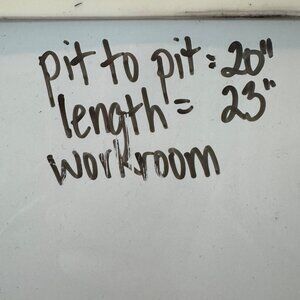 pit to pit = 20"
length = 23"
workroom